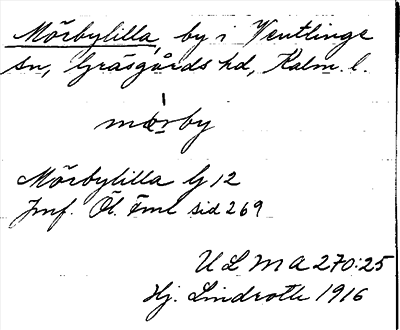 Mörbylilla, by i Ventlinge
sn, Gräsgårds hd, Kalm. l.
mörby
Mörbylilla G 12
Jmf. Öl. Fml sid 269
ULMA 270:25
Hj. Lindroth 1916